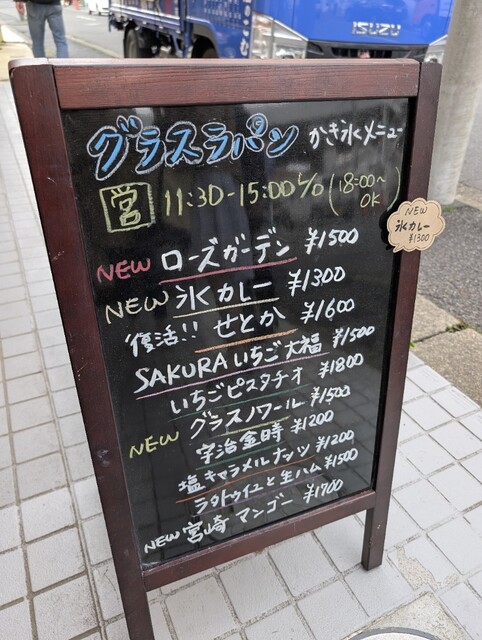 ISUZU
グラスラパン かき氷メニュー
営 11:30-15:00 L/O (18:00~ OK)
NEW
氷カレー
¥1300
NEW ローズガーデン ¥1500
NEW 氷カレー ¥1300
復活!! せとか ¥1600
SAKURAいちご大福 ¥1500
いちごピスタチオ ¥1800
NEW グラスノワール ¥1500
宇治金時 ¥1200
塩キャラメルナッツ ¥1200
ラタトゥイユと生ハム ¥1500
NEW 宮崎マンゴー ¥1700